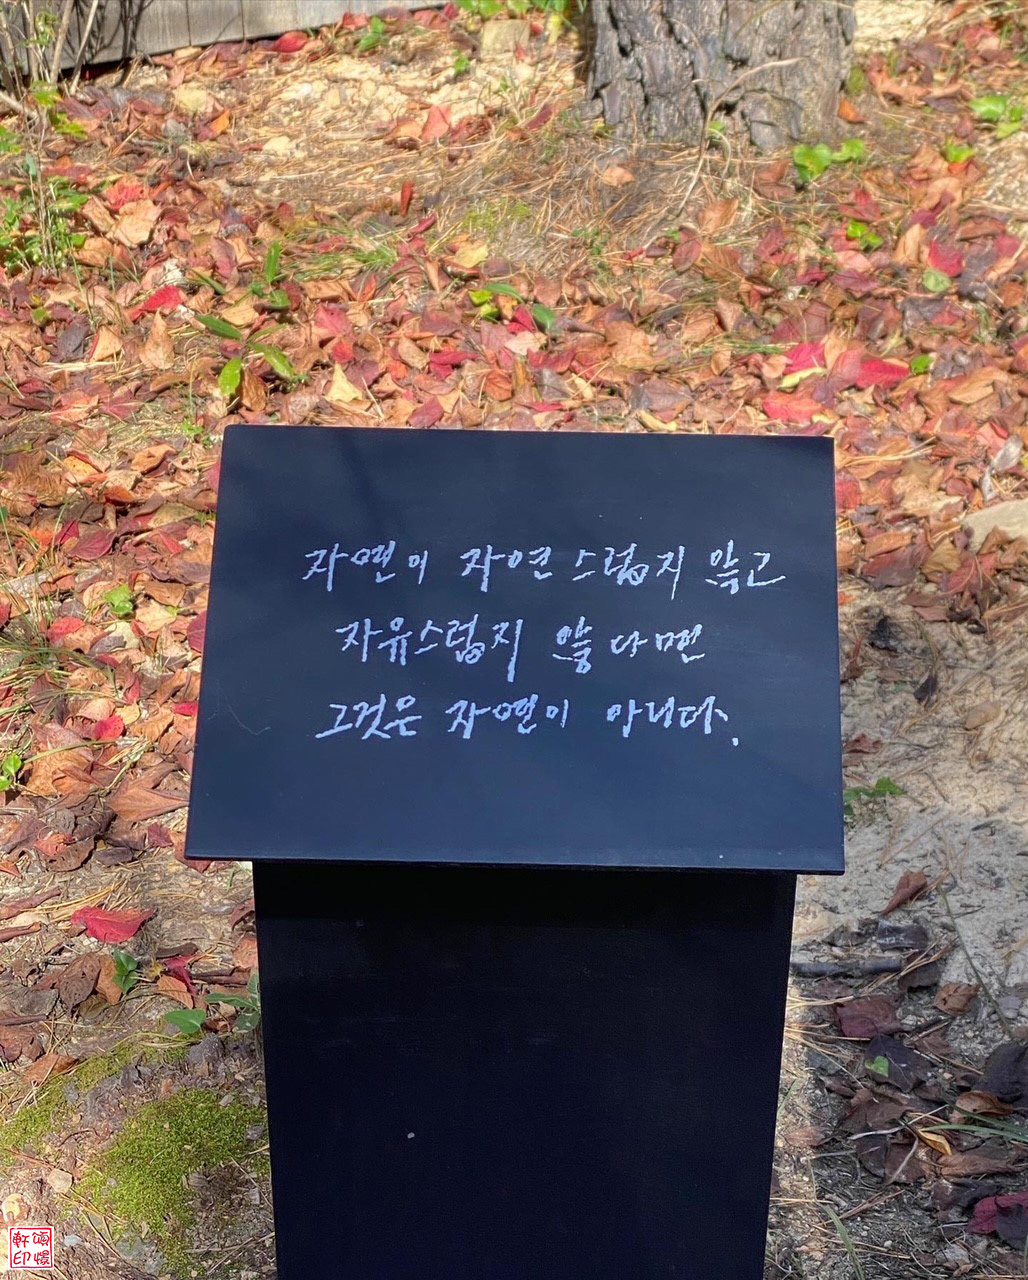 자연이 자연스럽지 않고
자유스럽지 않다면
그것은 자연이 아니다.